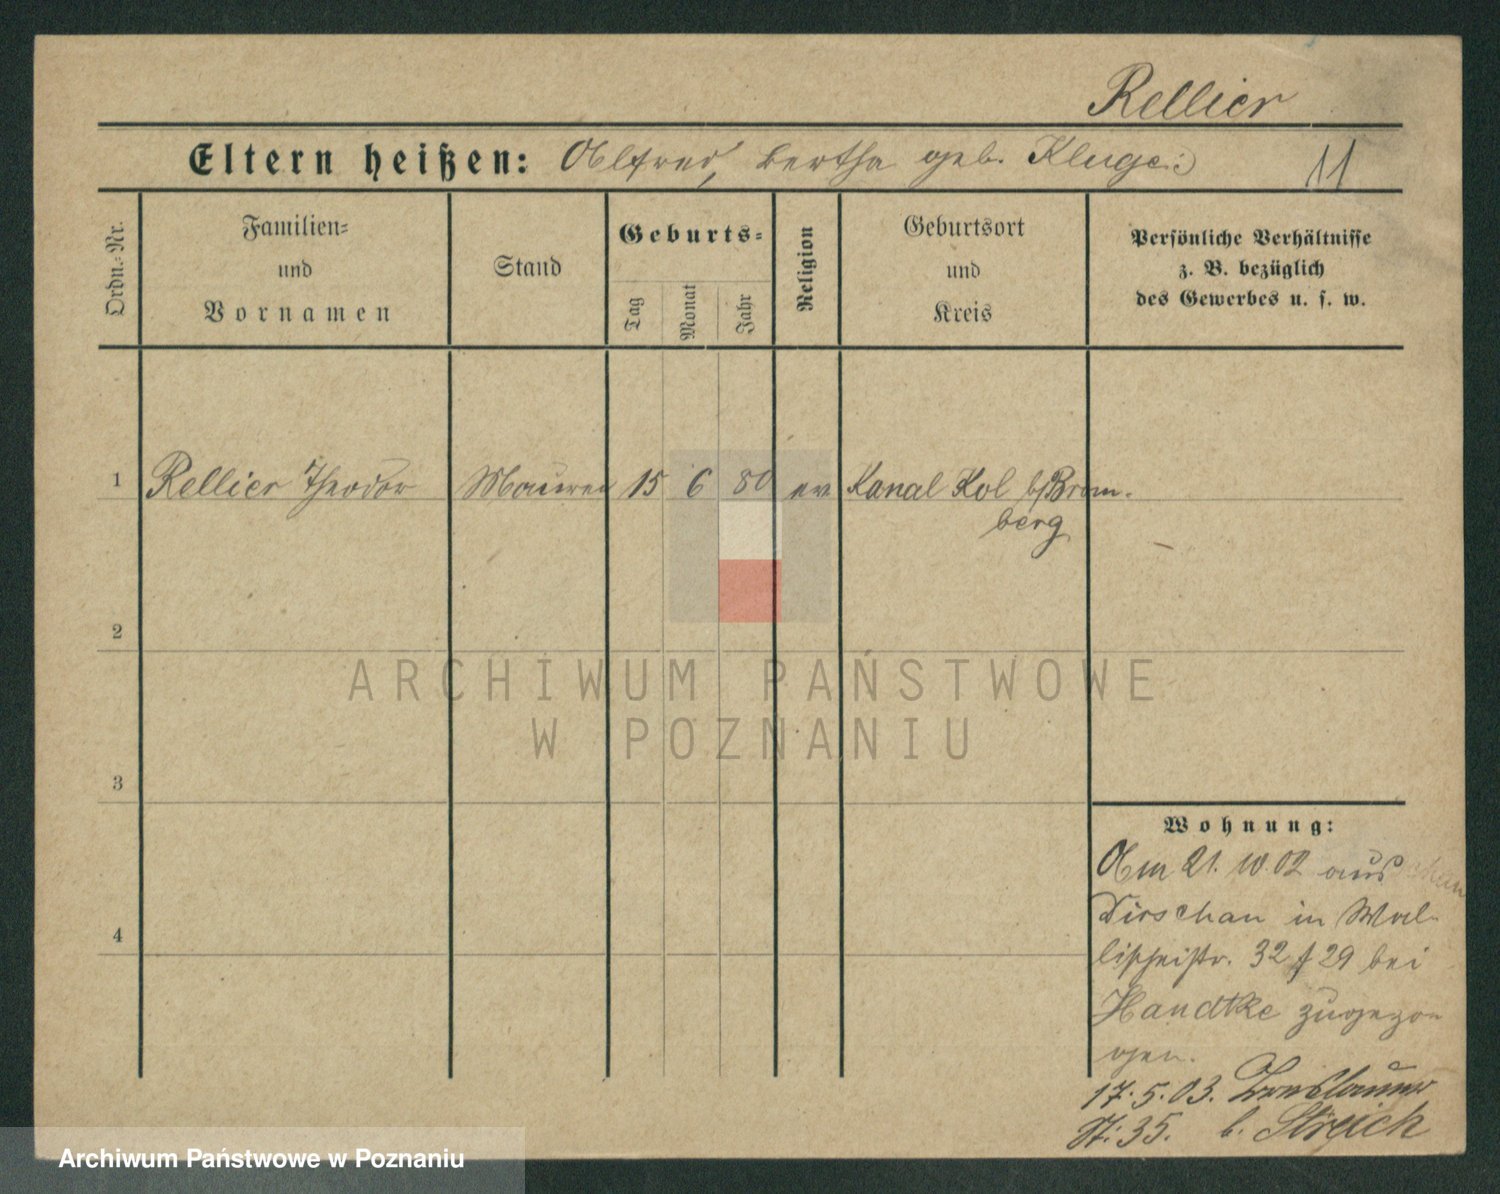 Rellier
Eltern heißen: Alfred, Bertha geb. Kluge
11
Ordn.-Nr.
Familien-
und
Vornamen
Stand
Geburts-
Tag
Monat
Jahr
Religion
Geburtsort
und
Kreis
Persönliche Verhältnisse
z. B. bezüglich
des Gewerbes u. s. w.
1 Rellier Theodor Maurer 15 6 80 ev Kanal Kol b/Brom-
berg
2
ARCHIWUM PAŃSTWOWE
W POZNANIU
3
Wohnung:
Am 21. 10. 02 aus
Dirschau in Wal-
lischeistr. 32 f 29 bei
Handtke zugezo-
gen.
4
17. 5. 03. Breslauer
St. 35. b. Streich
Archiwum Państwowe w Poznaniu